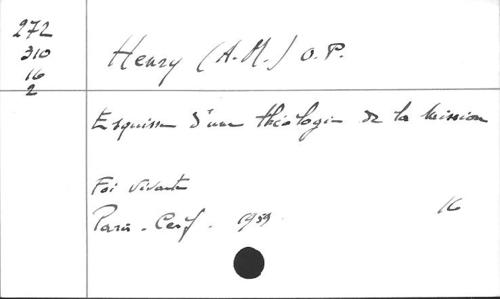 272
310
16
2
Henry (A.-M.) O.P.
Esquisse d'une théologie de la Mission
Foi vivante
Paris - Cerf. 1959
16